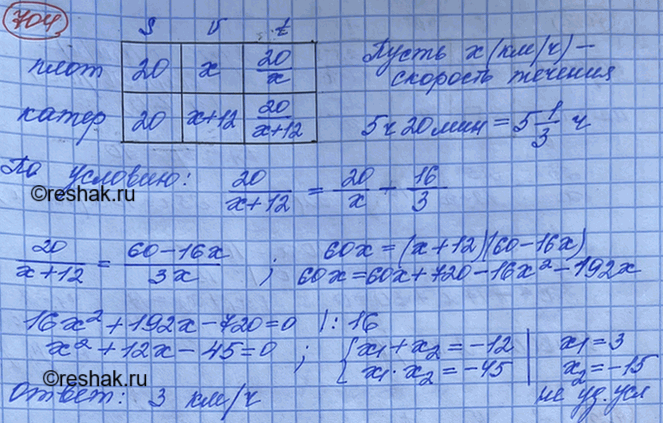 704.
S v t
плот 20 x 20/x
катер 20 x+12 20/(x+12)
Пусть x (км/ч) –
скорость течения
5 ч 20 мин = 5 1/3 ч
По условию: 20/(x+12) = 20/x – 16/3
©reshak.ru
20/(x+12) = (60–16x)/3x ; 60x=(x+12)(60–16x)
60x=60x+720–16x²–192x
16x²+192x–720=0 |:16
x²+12x–45=0 ; { x1+x2=–12 | x1=3
x1·x2=–45 | x2=–15
©reshak.ru
Ответ: 3 км/ч не уд. усл